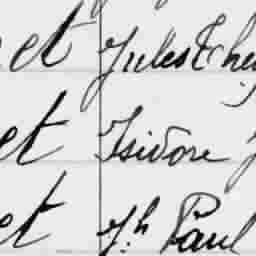 et Jules Th
et Isidore
et Jh Paul